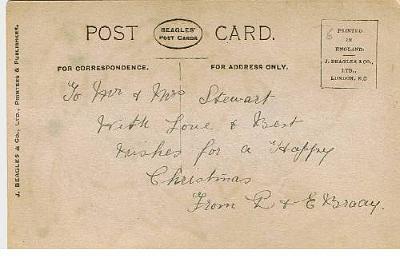 POST CARD.
BEAGLES'
POST CARDS
FOR CORRESPONDENCE.
FOR ADDRESS ONLY.
6 PRINTED
IN
ENGLAND.
J. BEAGLES & CO.,
LTD.,
LONDON, E.C
J. BEAGLES & CO., LTD., PRINTERS & PUBLISHERS.
To Mr & Mrs Stewart
With Love & Best
Wishes for a Happy
Christmas
From P & E